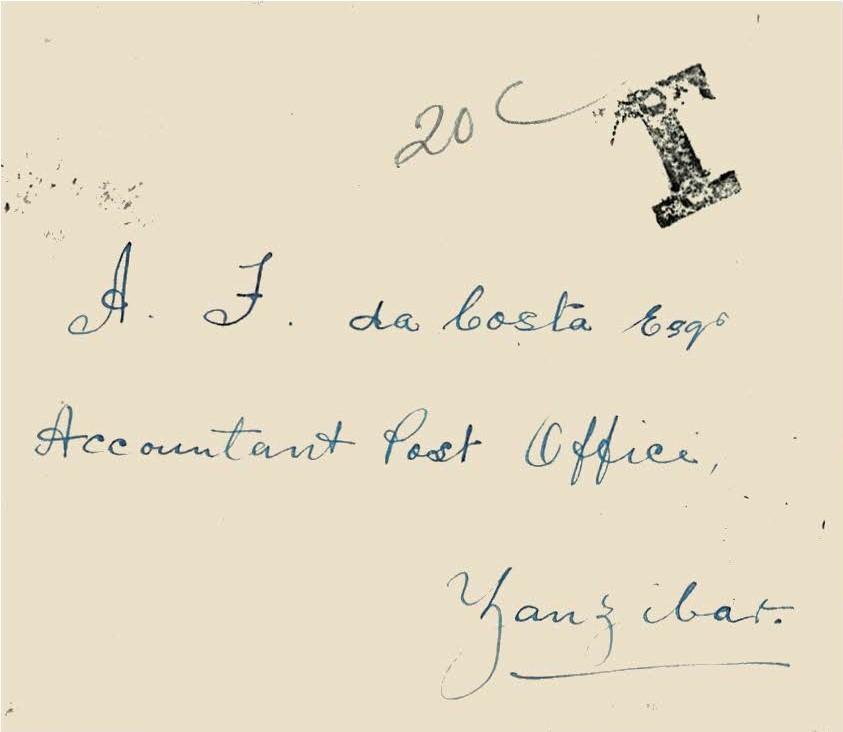 20 C T
A. F. da Costa Esqr
Accountant Post Office,
Zanzibar.